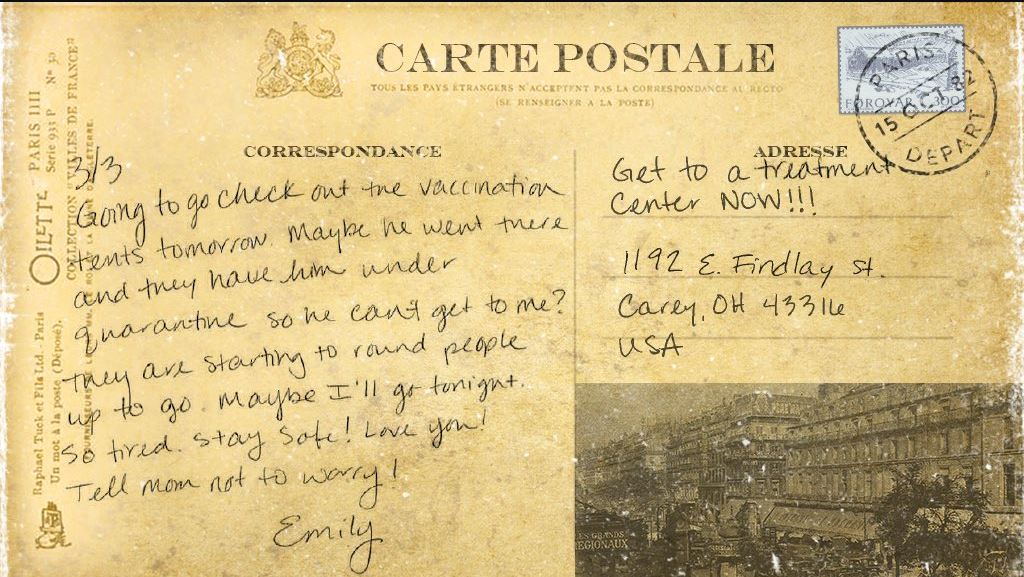 CARTE POSTALE
TOUS LES PAYS ÉTRANGERS N'ACCEPTENT PAS LA CORRESPONDANCE AU RECTO
(SE RENSEIGNER A LA POSTE)
FØROYAR 300
PARIS
15 OCT 82
DEPART
PARIS IIII
Série 933 P   Nº 50
OILETTE
COLLECTION "VILLES DE FRANCE"
Raphael Tuck et Fils Ltd., Paris
Un mot à la poste (Déposé).
CORRESPONDANCE
3/3
Going to go check out the vaccination
tents tomorrow. Maybe he went there
and they have him under
quarantine so he can't get to me?
They are starting to round people
up to go. Maybe I'll go tonight.
So tired. Stay safe! Love you!
Tell mom not to worry!
Emily
ADRESSE
Get to a treatment
Center NOW!!!
1192 E. Findlay St.
Carey, OH 43316
USA
LES GRANDS
REGIONAUX